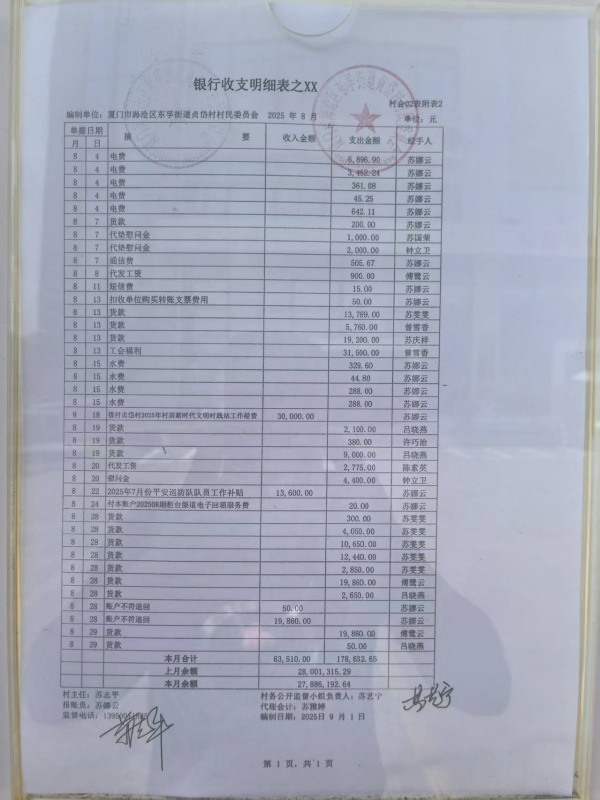 银行收支明细表之XX
村会02表附表2
编制单位：厦门市海沧区东孚街道贞岱村村民委员会 2025 年 8 月 单位：元
单据日期 摘 要 收入金额 支出金额 经手人
月 日
8 4 电费 6,896.90 苏娜云
8 4 电费 3,452.24 苏娜云
8 4 电费 361.08 苏娜云
8 4 电费 45.25 苏娜云
8 4 电费 642.11 苏娜云
8 7 货款 200.00 苏娜云
8 7 代垫慰问金 1,000.00 苏国荣
8 7 代垫慰问金 2,000.00 钟立卫
8 7 通信费 505.67 苏娜云
8 8 代发工资 900.00 傅鹭云
8 11 短信费 15.00 苏娜云
8 13 扣收单位购买转账支票费用 50.00 苏娜云
8 13 货款 13,769.00 苏雯雯
8 13 货款 5,760.00 曾雪香
8 13 货款 19,200.00 苏庆祥
8 13 工会福利 31,500.00 曾雪香
8 15 水费 329.60 苏娜云
8 15 水费 44.80 苏娜云
8 15 水费 288.00 苏娜云
8 15 水费 288.00 苏娜云
8 18 拨付贞岱村2025年村居新时代文明时践站工作经费 30,000.00 苏娜云
8 19 货款 2,100.00 吕晓燕
8 19 货款 380.00 许巧治
8 19 货款 9,000.00 吕晓燕
8 20 代发工资 2,775.00 陈素英
8 20 慰问金 4,400.00 钟立卫
8 22 2025年7月份平安巡防队队员工作补贴 13,600.00 苏娜云
8 24 付本账户202508期柜台渠道电子回箱服务费 20.00 苏娜云
8 28 货款 300.00 苏雯雯
8 28 货款 4,050.00 苏雯雯
8 28 货款 10,650.00 苏雯雯
8 28 货款 12,440.00 苏雯雯
8 28 货款 2,850.00 苏雯雯
8 28 货款 19,860.00 傅鹭云
8 28 货款 2,650.00 吕晓燕
8 28 账户不符退回 50.00 苏娜云
8 28 账户不符退回 19,860.00 苏娜云
8 29 货款 19,860.00 傅鹭云
8 29 货款 50.00 吕晓燕
本月合计 63,510.00 178,632.65
上月余额 28,001,315.29
本月余额 27,886,192.64
村主任：苏志平 村务公开监督小组负责人：苏艺宁
报账员：苏娜云 代理会计：苏雅婷
监督电话： 编制日期：2025日 9 月 1 日
第 1 页，共 1 页